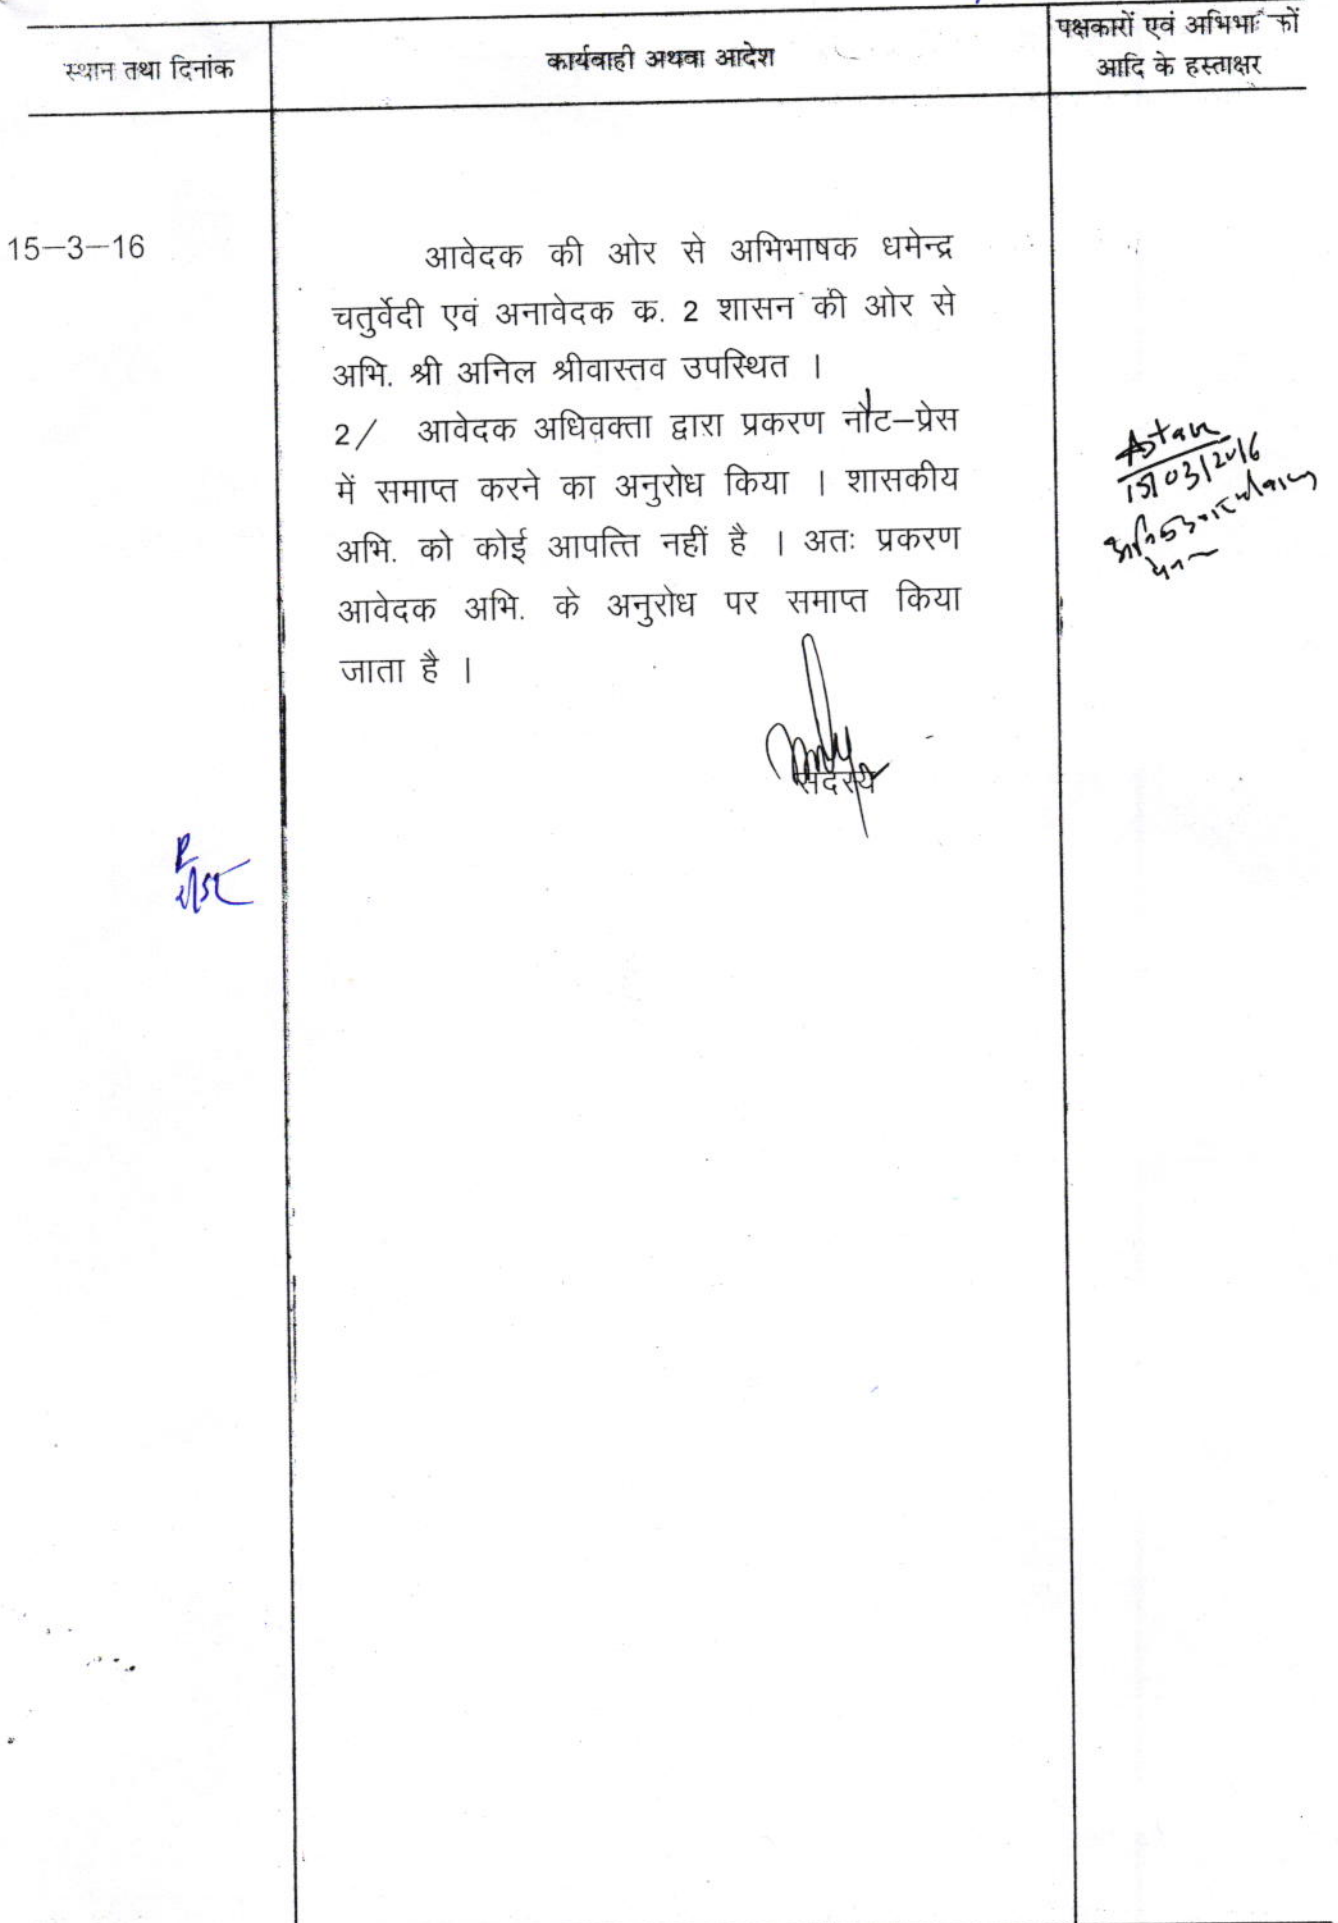 स्थान तथा दिनांक
कार्यवाही अथवा आदेश
पक्षकारों एवं अभिभा कों
आदि के हस्ताक्षर
15-3-16
आवेदक की ओर से अभिभाषक धमेन्द्र
चतुर्वेदी एवं अनावेदक क. 2 शासन की ओर से
अभि. श्री अनिल श्रीवास्तव उपस्थित ।
2/ आवेदक अधिवक्ता द्वारा प्रकरण नौट-प्रेस
में समाप्त करने का अनुरोध किया । शासकीय
अभि. को कोई आपत्ति नहीं है । अतः प्रकरण
आवेदक अभि. के अनुरोध पर समाप्त किया
जाता है ।
सदस्य
15/03/2016